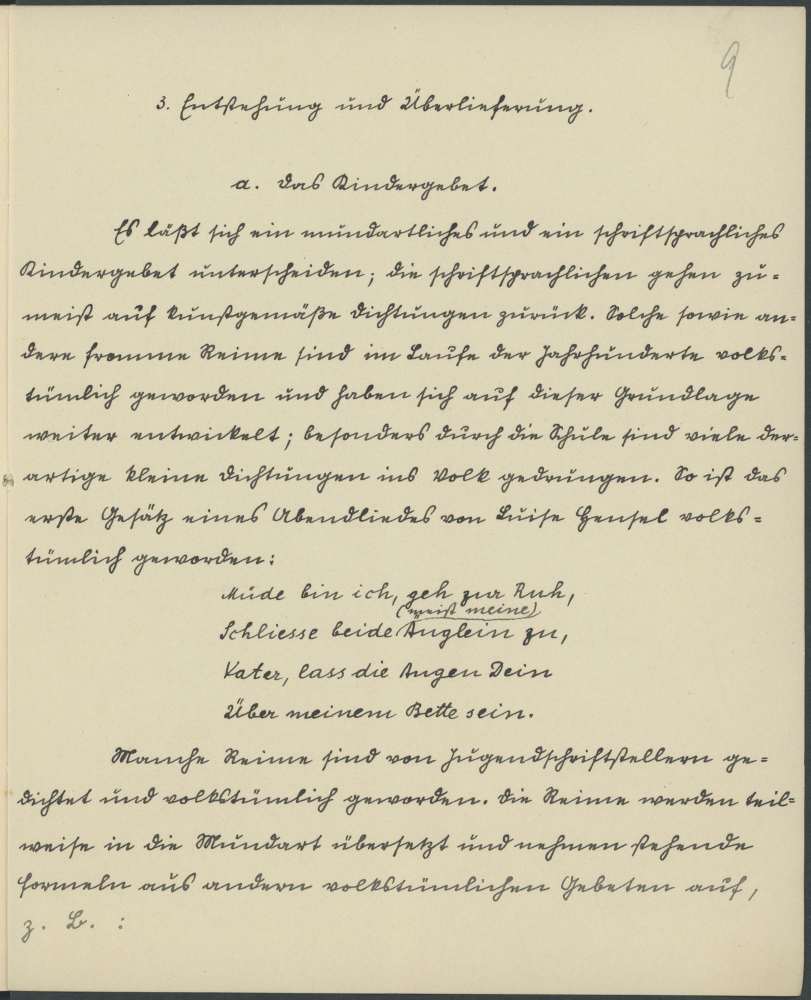 9
3. Entstehung und Überlieferung.
a. Das Kindergebet.
Es läßt sich ein mundartliches und ein schriftsprachliches
Kindergebet unterscheiden; die schriftsprachlichen gehen zu=
meist auf kunstgemäße Dichtungen zurück. Solche sowie an=
dere fromme Reime sind im Laufe der Jahrhunderte volks=
tümlich geworden und haben sich auf dieser Grundlage
weiter entwickelt; besonders durch die Schule sind viele der=
artige kleine Dichtungen ins Volk gedrungen. So ist das
erste Gesätz eines Abendliedes von Luise Hensel volks=
tümlich geworden:
Müde bin ich, geh zur Ruh,
(meist meine)
Schliesse beide Äuglein zu,
Vater, lass die Augen Dein
Über meinem Bette sein.
Manche Reime sind von Jugendschriftstellern ge=
dichtet und volkstümlich geworden. Die Reime werden teil=
weise in die Mundart übersetzt und nehmen stehende
Formeln aus andern volkstümlichen Gebeten auf,
z. B. :